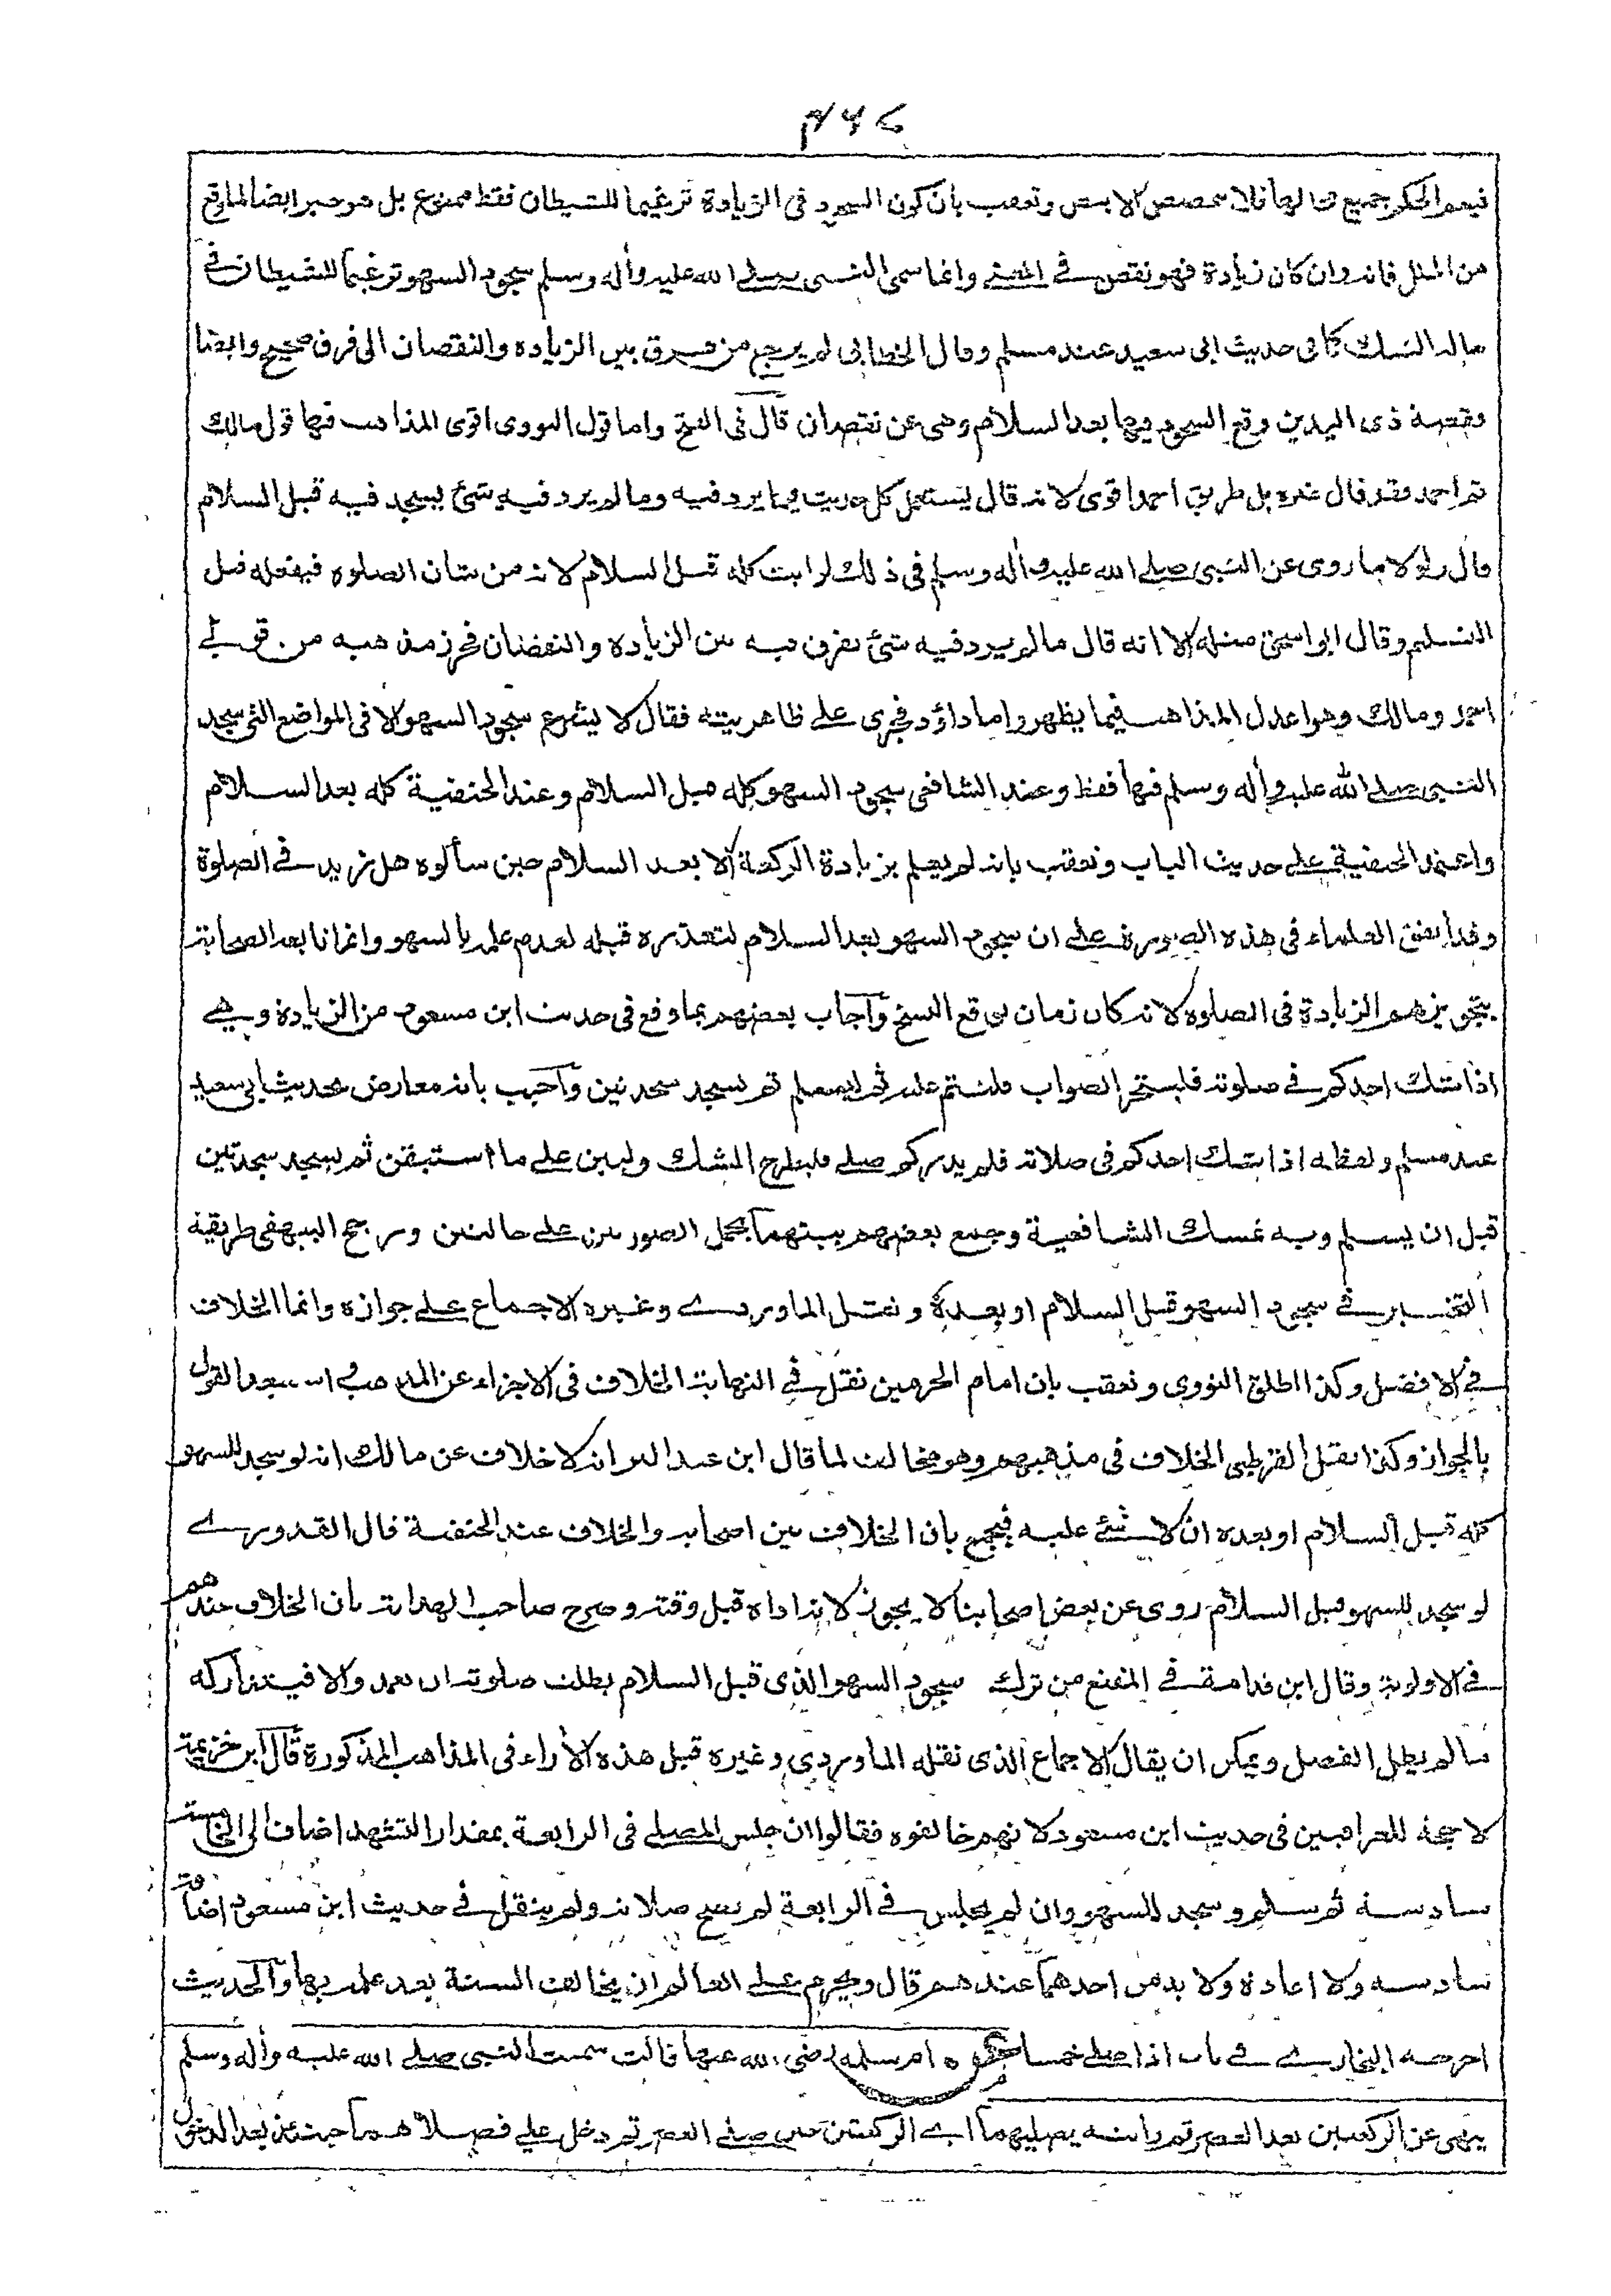 ۴۶۷
فيعم الحكم جميع محالها فلا تخصص الا بنص وتعقب بان كون السجود فى الزيادة ترغيما للشيطان فقط ممنوع بل هو جبر ايضا لما وقع
من الخلل فانه وان كان زيادة فهو نقص فى المعنى وانما سمى النبى صلى الله عليه وأله وسلم سجود السهو ترغيما للشيطان فى
حالة الشك كما فى حديث ابى سعيد عند مسلم وقال الخطابى لم يرجع من فرق بين الزيادة والنقصان الى فرق صحيح وايضا
فقصة ذى اليدين وقع السجود فيها بعد السلام وهى عن نقصان قال فى الفتح واما قول النووى اقوى المذاهب فيها قول مالك
ثم احمد فقد قال غيره بل طريق احمد اقوى لانه قال يستعمل كل حديث فيما يرد فيه وما لم يرد فيه شئ يسجد فيه قبل السلام
قال ولولا ما روى عن النبى صلى الله عليه وأله وسلم فى ذلك لرايت كله قبل السلام لانه من شان الصلوة فيفعله قبل
التسليم وقال ابو اسحق مثله الا انه قال ما لم يرد فيه شئ يفرق فيه بين الزيادة والنقصان فحرر مذهبه من قولى
احمد ومالك وهو اعدل المذاهب فيما يظهر واما داؤد فجرى على ظاهريته فقال لا يشرع سجود السهو الا فى المواضع التى سجد
النبى صلى الله عليه وأله وسلم فيها فقط وعند الشافعى سجود السهو كله قبل السلام وعند الحنفية كله بعد السلام
واعتمد الحنفية على حديث الباب وتعقب بانه لم يعلم بزيادة الركعة الا بعد السلام حين سألوه هل زيد فى الصلوة
وقد اتفق العلماء فى هذه الصورة على ان سجود السهو بعد السلام لتعذره قبله لعدم علمه بالسهو وانما تابعه الصحابة
بتجويزهم الزيادة فى الصلوة لانه كان زمان توقع النسخ وأجاب بعضهم بما وقع فى حديث ابن مسعود من الزيادة وهى
اذا شك احدكم فى صلوته فليتحر الصواب فليتم عليه ثم ليسلم ثم يسجد سجدتين وأجيب بانه معارض بحديث ابى سعيد
عند مسلم ولفظه اذا شك احدكم فى صلاته فلم يدر كم صلى فليطرح الشك وليبن على ما استيقن ثم يسجد سجدتين
قبل ان يسلم وبه تمسك الشافعية وجمع بعضهم بينهما بحمل الصورتين على حالتين ورجح البيهقى طريقة
التخيير فى سجود السهو قبل السلام او بعده ونقل الماوردى وغيره الاجماع على جوازه وانما الخلاف
فى الافضل وكذا اطلق النووى وتعقب بان امام الحرمين نقل فى النهاية الخلاف فى الاجزاء عن المذهب واستبعد القول
بالجواز وكذا نقل القرطبى الخلاف فى مذهبهم وهو مخالف لما قال ابن عبد البر انه لا خلاف عن مالك انه لو سجد للسهو
كله قبل السلام او بعده ان لا شئ عليه فيجمع بان الخلاف بين اصحابه والخلاف عند الحنفية قال القدورى
لو سجد للسهو قبل السلام روى عن بعض اصحابنا لا يجوز لانه اداه قبل وقته وصرح صاحب الهداية بان الخلاف عندهم
فى الاولوية وقال ابن قدامة فى المقنع من ترك سجود السهو الذى قبل السلام بطلت صلوته ان تعمد والا فيتداركه
ما لم يطل الفصل ويمكن ان يقال الاجماع الذى نقله الماوردى وغيره قبل هذه الأراء فى المذاهب المذكورة قال ابن خزيمة
لا حجة للعراقيين فى حديث ابن مسعود لانهم خالفوه فقالوا ان جلس المصلى فى الرابعة بمقدار التشهد اضاف الى الخامسة
سادسة ثم سلم وسجد للسهو وان لم يجلس فى الرابعة لم تصح صلاته ولم ينقل فى حديث ابن مسعود اضافة
سادسة ولا اعادة ولا بد من احدهما عندهم قال ويحرم على العالم ان يخالف السنة بعد علمه بها والحديث
اخرجه البخارى فى باب اذا صلى خمسا ام سلمة رضى الله عنها قالت سمعت النبى صلى الله عليه وأله وسلم
ينهى عن الركعتين بعد العصر ثم رايته يصليهما اى الركعتين حين صلى العصر ثم دخل على فصلاهما حينئذ بعد الدخول